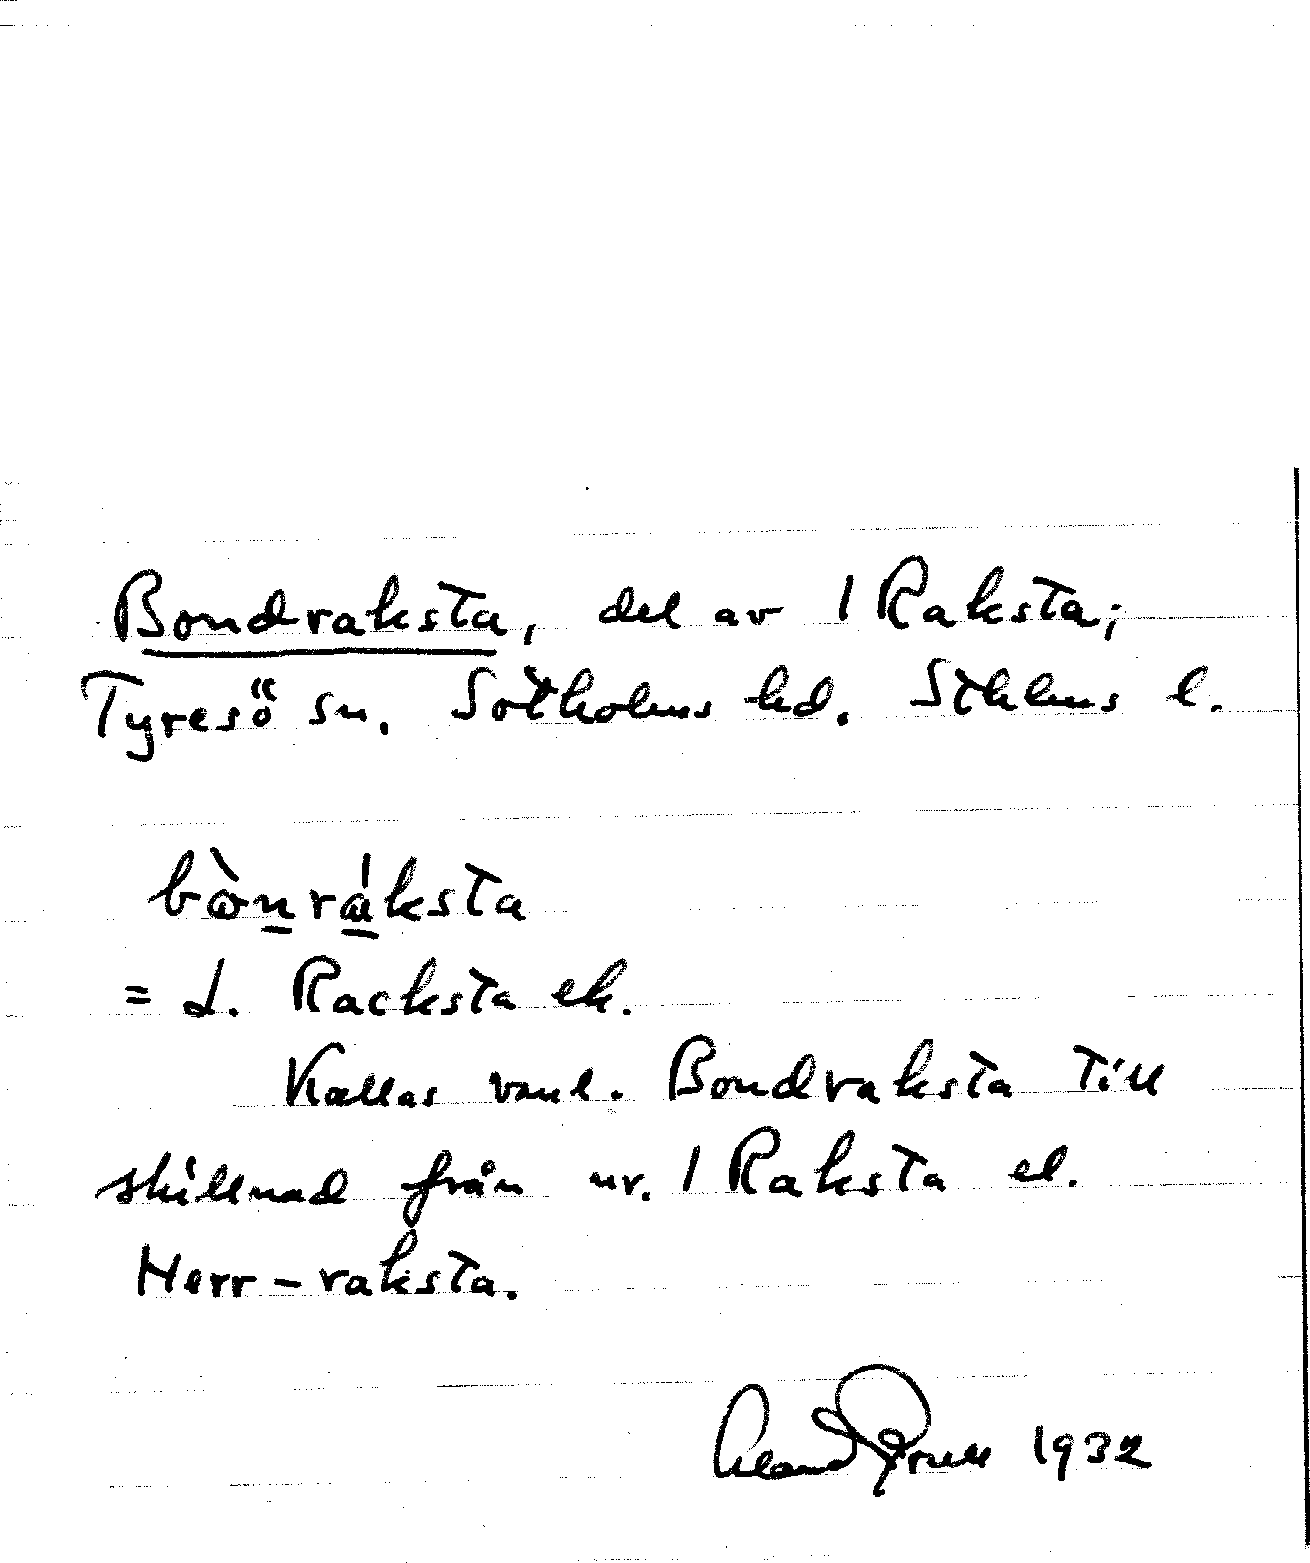 Bondraksta, del av 1 Raksta;
Tyresö sn. Sotholms hd. Sthlms l.
bònráksta
= d. Racksta ek.
Kallas vanl. Bondraksta till
skillnad från nr. 1 Raksta el.
Herr-raksta.
1932